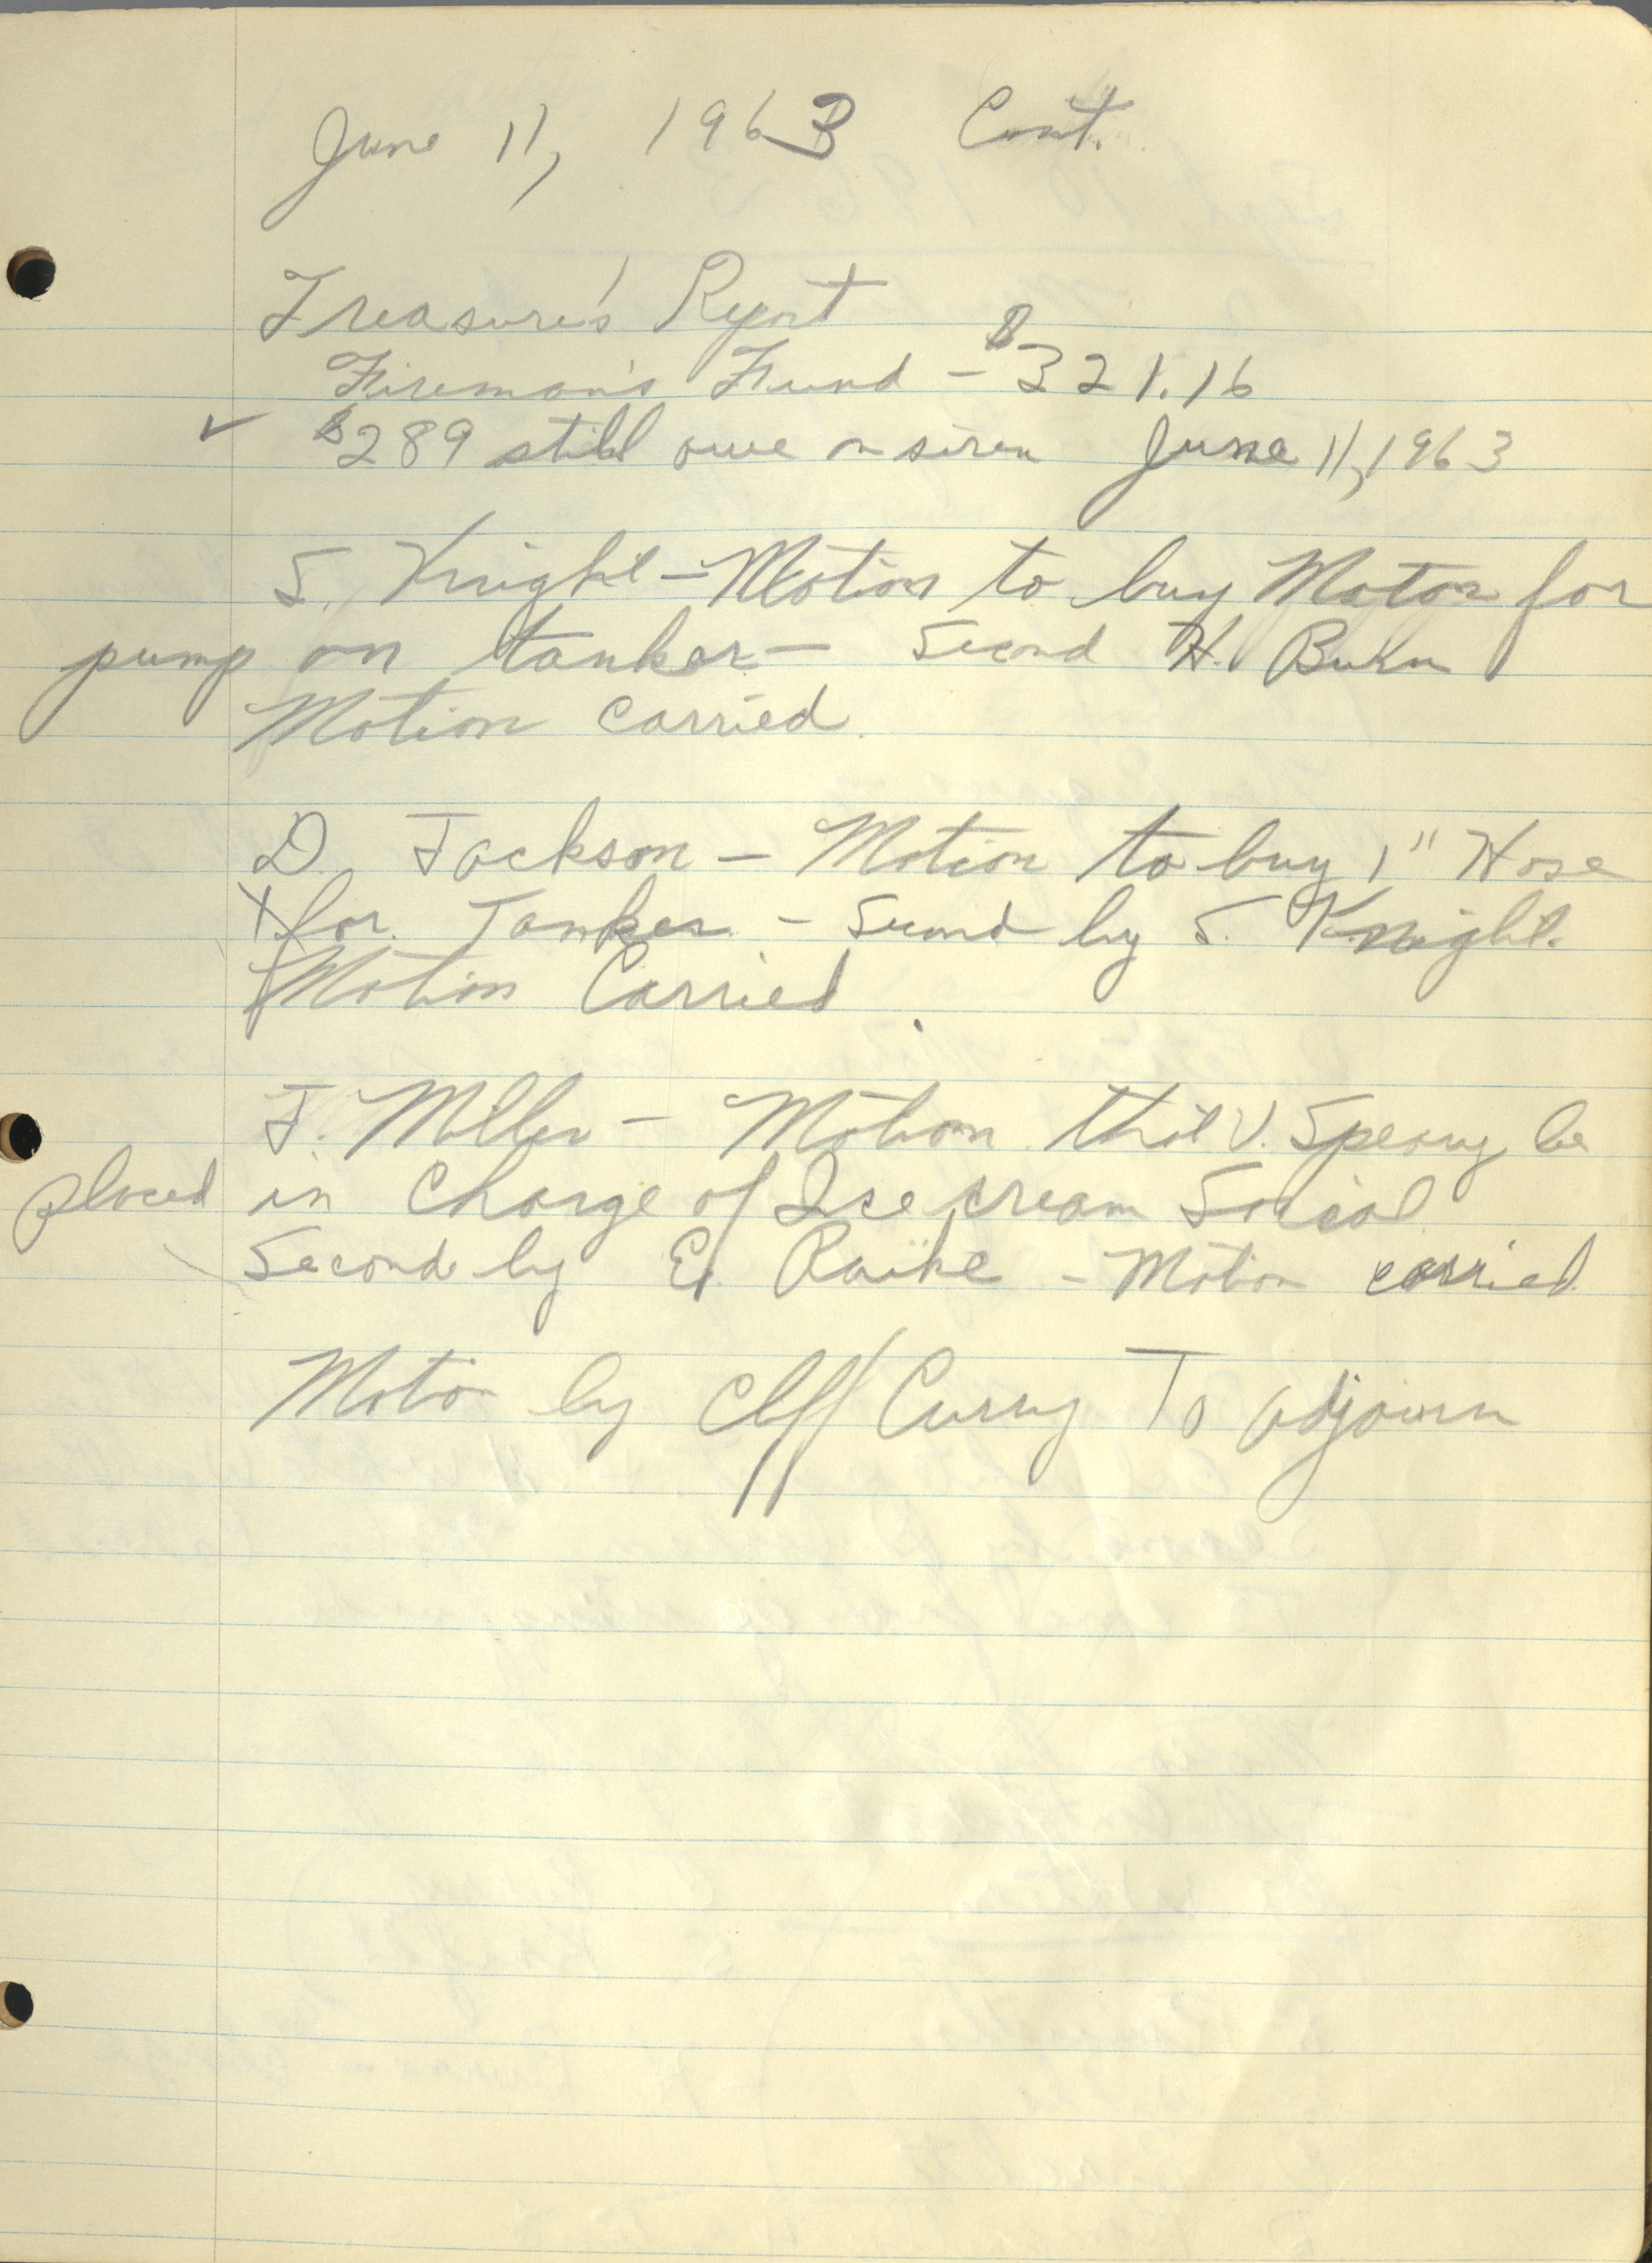 June 11, 1963 Cont.
Treasure's Report
Fireman's Fund - $321.16
✓ $289 still owe on siren June 11, 1963
S. Knight - Motion to buy Motor for
pump on tanker - Second H. Buhn
Motion carried.
D. Jackson - Motion to buy 1" Hose
X for Tanker - Second by S. Knight.
Motion Carried.
J. Miller - Motion that V. Speary be
placed in Charge of Ice cream Social
Second by E. Raike - Motion carried.
Motion by Cliff Curry To adjourn